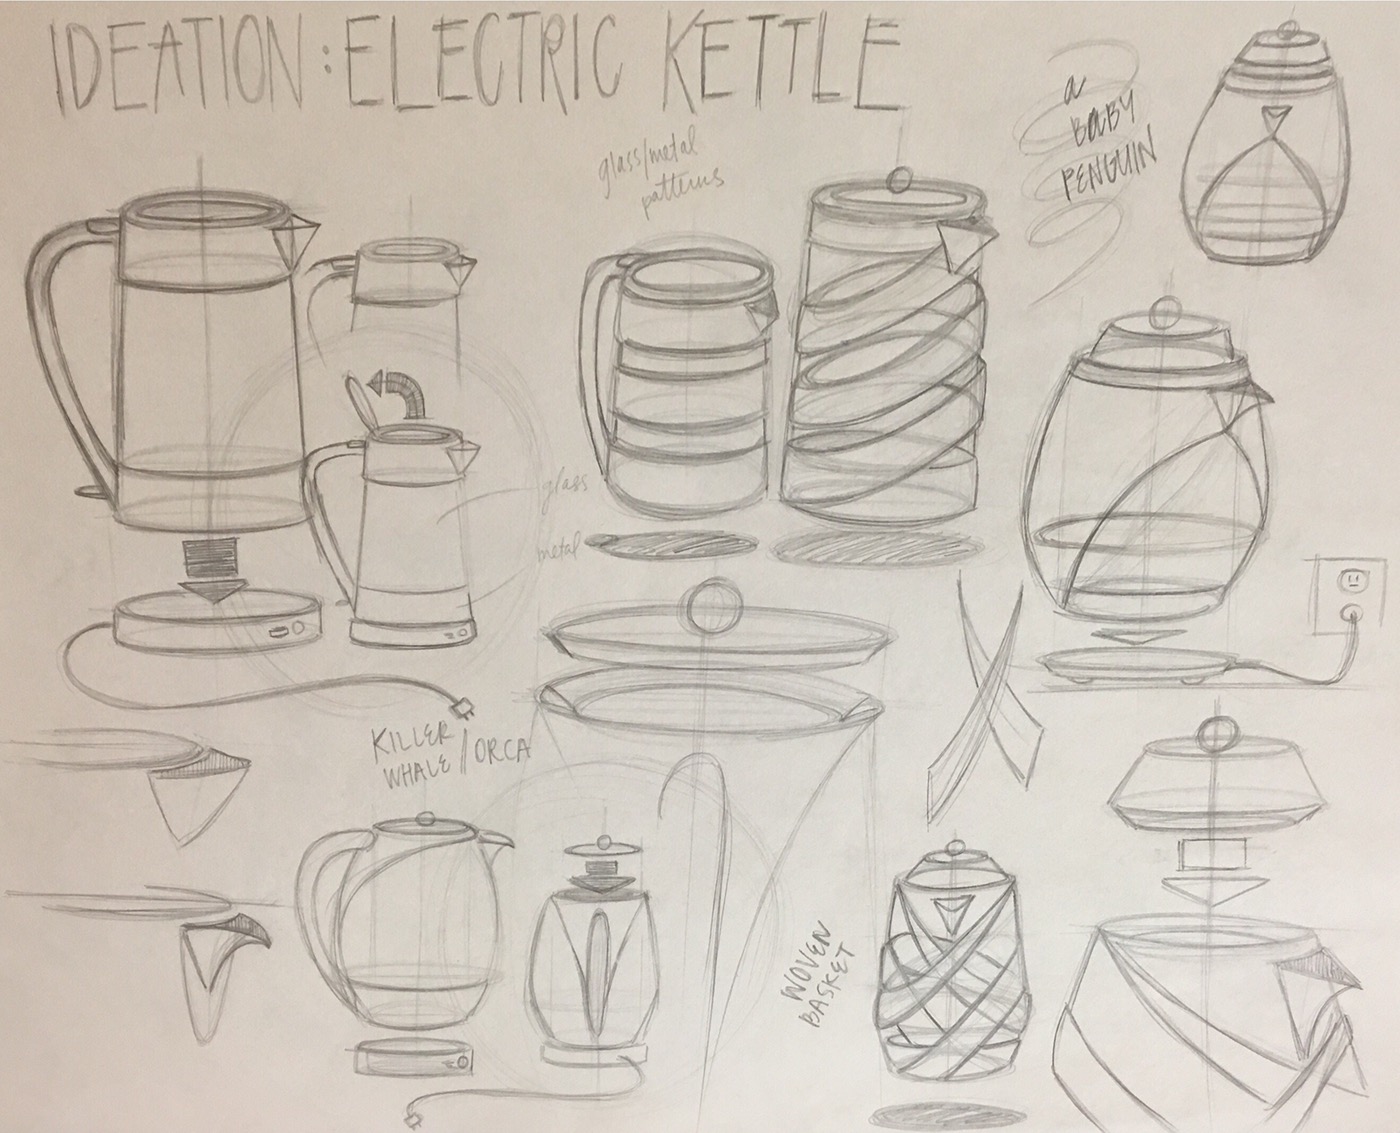 IDEATION: ELECTRIC KETTLE
a
BABY
PENGUIN
glass/metal
patterns
glass
metal
KILLER
WHALE / ORCA
WOVEN
BASKET